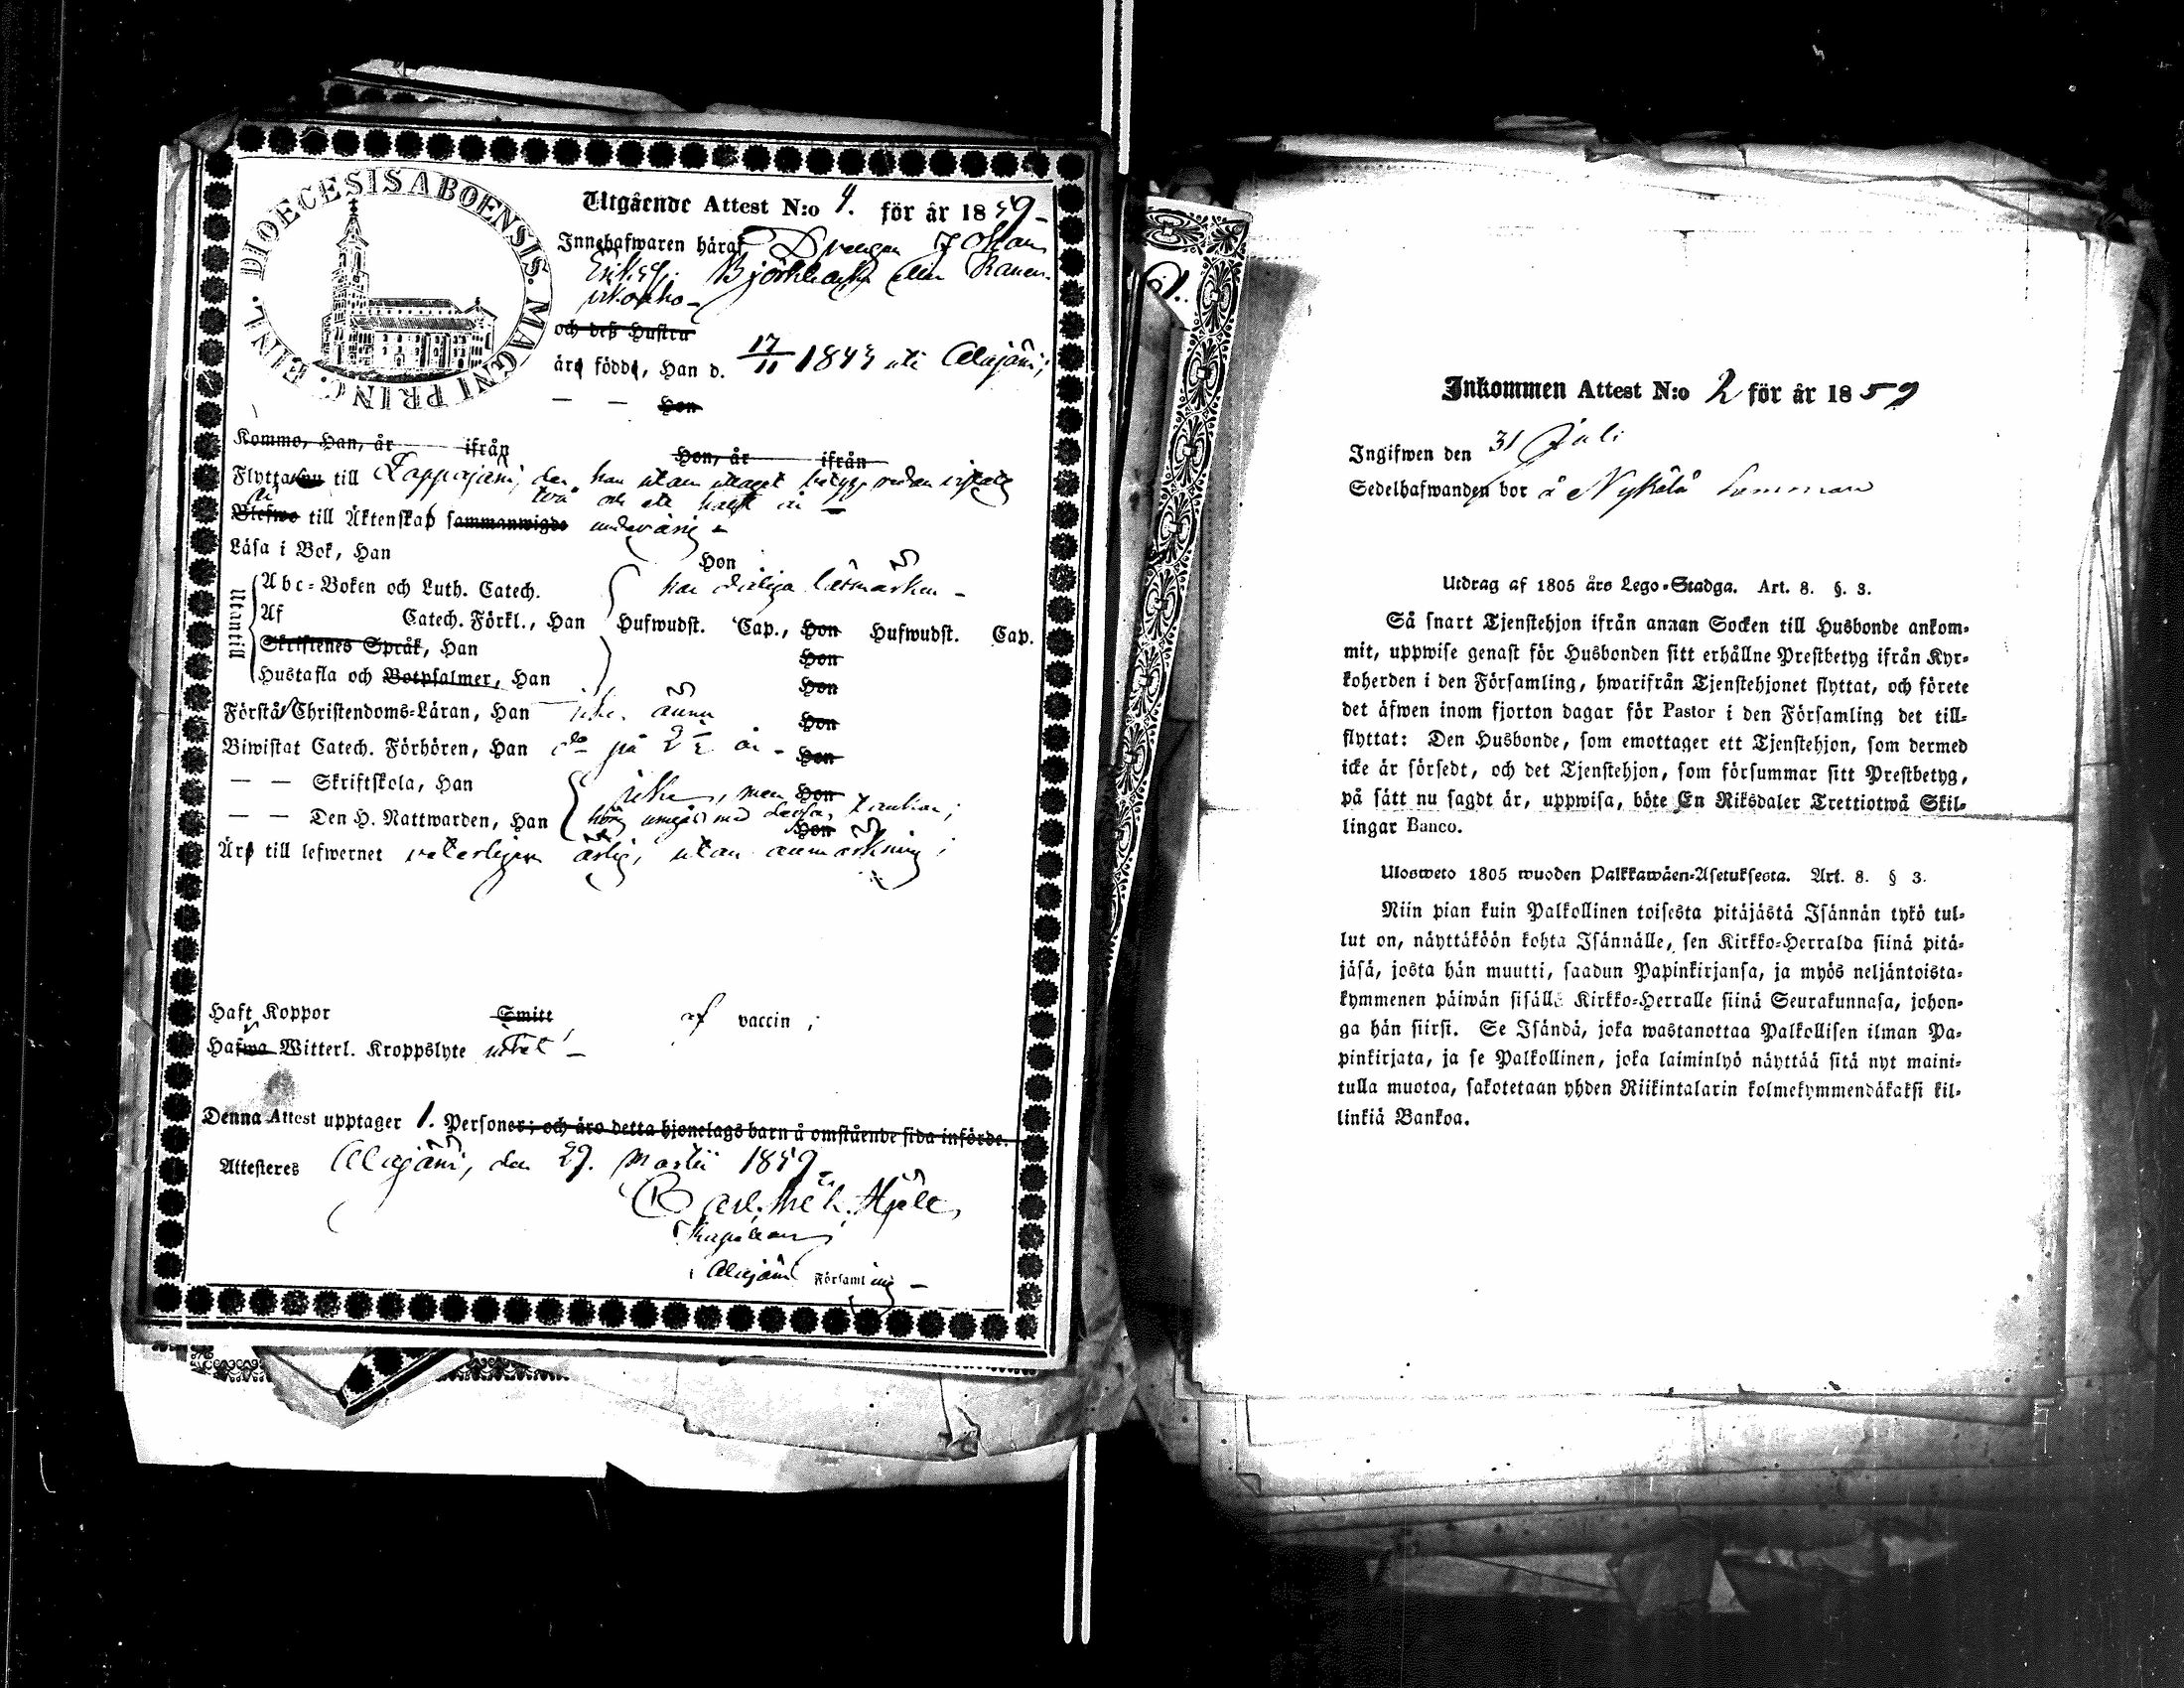 DIOECESIS ABOENSIS. MAGNI PRINC. FINL.
Utgående Attest N:o 4. för år 1859
Innehafwaren häraf Drengen Johan
Eriksson Björkbacka
och deß Hustru
äro födde, Han d. 17/11 1843 uti Alajärvi;
— — Hon
Kommo, Han, år ifrån Hon, år ifrån
Flytta till Lappajärvi, der han utan uttaget betyg redan vistats
två och ett halft år
Blefwo till Äktenskap sammanwigde underårig
Läsa i Bok, Han Hon
Utantill
Abc-Boken och Luth. Catech. har
Af Catech. Förkl., Han Hufwudst. Cap., Hon Hufwudst. Cap.
Skriftenes Språk, Han Hon
Hustafla och Botpsalmer, Han Hon
Förstå Christendoms-Läran, Han Hon
Biwistat Catech. Förhören, Han på 2 ½ år Hon
— — Skriftskola, Han icke, men Hon
— — Den H. Nattwarden, Han Hon
Äro till lefwernet ärlig, utan anmärkning;
Haft Koppor Smitt af vaccin;
Hafwa Witterl. Kroppslyte intet
Denna Attest upptager 1. Personer; och äro detta hjonelags barn å omstående sida införde.
Attesteres Alajärvi, den 29. Martii 1859
Carl
Kapellan
Alajärvi Församling
61.
Inkommen Attest N:o 2 för år 1859
Ingifwen den 31 Juli
Sedelhafwanden bor å Nykälä hemman
Utdrag af 1805 års Lego-Stadga. Art. 8. §. 3.
Så snart Tjenstehjon ifrån annan Socken till Husbonde ankom-
mit, uppwise genast för Husbonden sitt erhållne Prestbetyg ifrån Kyr-
koherden i den Församling, hwarifrån Tjenstehjonet flyttat, och förete
det äfwen inom fjorton dagar för Pastor i den Församling det till-
flyttat: Den Husbonde, som emottager ett Tjenstehjon, som dermed
icke är försedt, och det Tjenstehjon, som försummar sitt Prestbetyg,
på sätt nu sagdt är, uppwisa, böte En Riksdaler Trettiotwå Skil-
lingar Banco.
Ulosweto 1805 wuoden Palkkawäen-Asetuksesta. Art. 8. § 3.
Niin pian kuin Palkollinen toisesta pitäjästä Isännän tykö tul-
lut on, näyttäköön kohta Isännälle, sen Kirkko-Herralda siinä pitä-
jäsä, josta hän muutti, saadun Papinkirjansa, ja myös neljäntoista-
kymmenen päiwän sisällä Kirkko-Herralle siinä Seurakunnasa, johon-
ga hän siirsi. Se Isändä, joka wastanottaa Palkollisen ilman Pa-
pinkirjata, ja se Palkollinen, joka laiminlyö näyttää sitä nyt maini-
tulla muotoa, sakotetaan yhden Riikintalarin kolmekymmendäkaksi kil-
linkiä Bankoa.